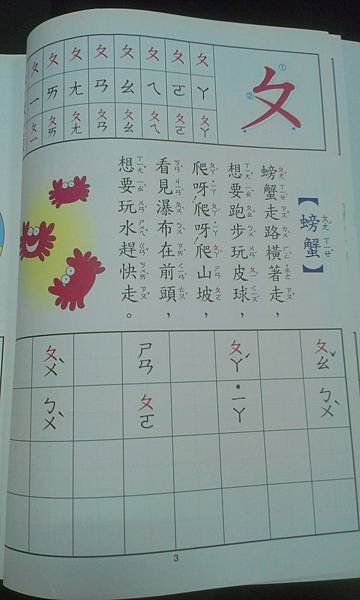 ㄆ
① ②
ㄆ ㄚ ㄆㄚ
ㄆ ㄛ ㄆㄛ
ㄆ ㄟ ㄆㄟ
ㄆ ㄠ ㄆㄠ
ㄆ ㄢ ㄆㄢ
ㄆ ㄤ ㄆㄤ
ㄆ ㄞ ㄆㄞ
ㄆ ㄧ ㄆㄧ
【螃蟹】
螃蟹走路橫著走，
想要跑步玩皮球，
爬呀爬呀爬山坡，
看見瀑布在前頭，
想要玩水趕快走。
ㄆㄠˇ ㄅㄨˋ
ㄆㄚˊ ˙ㄧㄚ
ㄕㄢ ㄆㄛ
ㄆㄨˋ ㄅㄨˋ
3